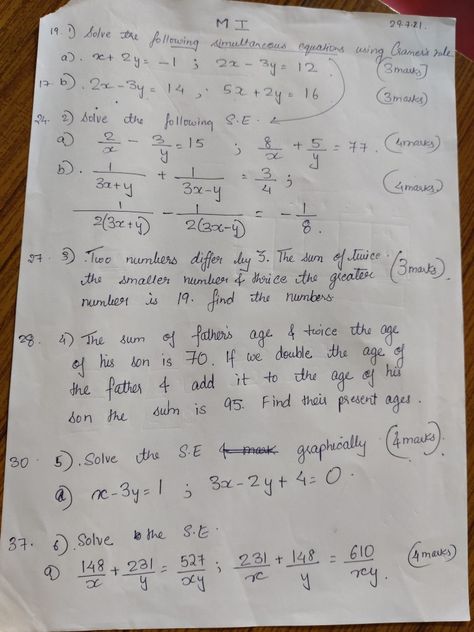 M I
29.7.21.
19. 1) Solve the following simultaneous equations using Cramer's rule
a). x + 2y = -1 ; 2x - 3y = 12. (3 marks)
17. b). 2x - 3y = 14 , 5x + 2y = 16 (3 marks)
24. 2) Solve the following S.E.
a) 2/x - 3/y = 15 ; 8/x + 5/y = 77. (4 marks)
b). 1/(3x+y) + 1/(3x-y) = 3/4 ; (4 marks)
1/2(3x+y) - 1/2(3x-y) = -1/8.
27. 3). Two numbers differ by 3. The sum of twice (3 marks).
the smaller number & thrice the greater
number is 19. find the numbers
28. 4) The sum of father's age & twice the age
of his son is 70. If we double the age of
the father & add it to the age of his
son the sum is 95. Find their present ages.
30. 5). Solve the S.E graphically (4 marks).
a) x - 3y = 1 ; 3x - 2y + 4 = 0.
37. 6). Solve the S.E.
a) 148/x + 231/y = 527/xy ; 231/x + 148/y = 610/xy. (4 marks)